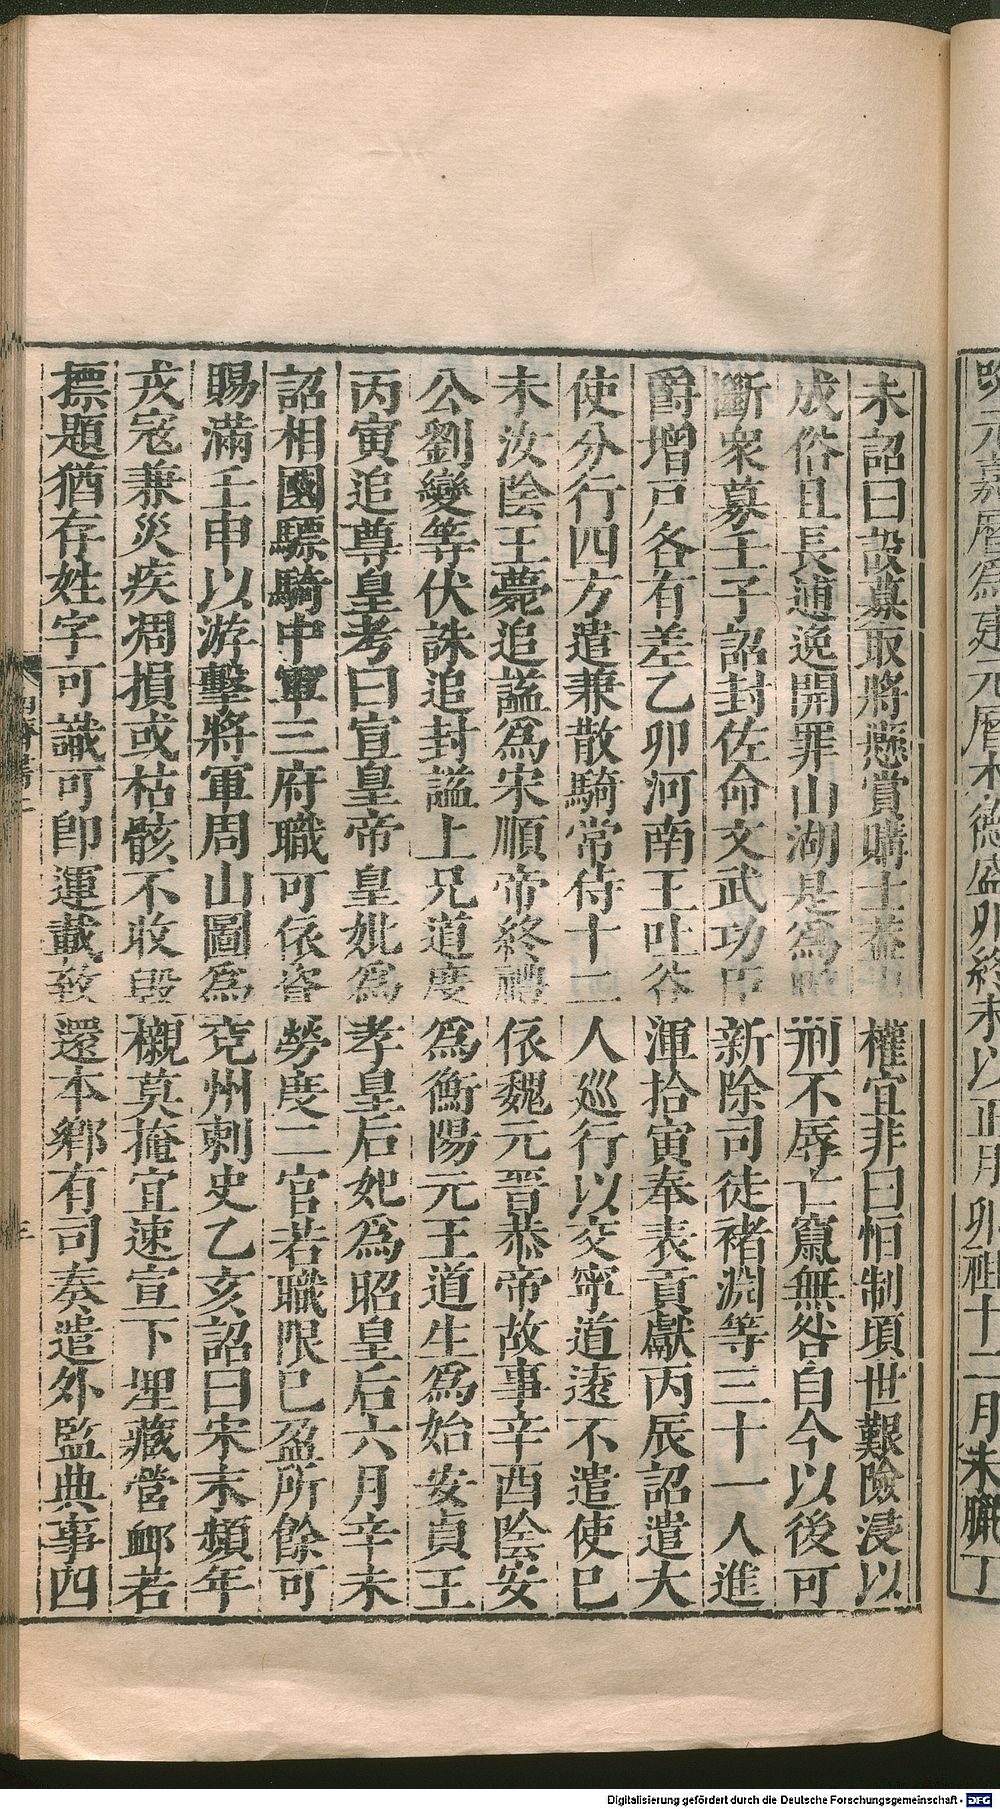 未詔曰設募取將懸賞購士蓋出權宜非曰恒制頃世艱險浸以
成俗且長逋逸開罪山湖是為刑不辱亡竄無咎自今以後可
斷衆募壬子詔封佐命文武功臣新除司徒褚淵等三十一人進
爵增戸各有差乙卯河南王吐谷渾拾寅奉表貢獻丙辰詔遣大
使分行四方遣兼散騎常侍十二人巡行以交寧道遠不遣使己
未汝陰王薨追謚為宋順帝終禮依魏元晉恭帝故事辛酉陰安
公劉燮等伏誅追封謚上兄道度為衡陽元王道生為始安貞王
丙寅追尊皇考曰宣皇帝皇妣為孝皇后妃為昭皇后六月辛未
詔相國驃騎中軍三府職可依資勞度二官若職限已盈所餘可
賜滿壬申以游擊將軍周山圖為兗州刺史乙亥詔曰宋末頻年
戎寇兼災疾凋損或枯骸不收毀櫬莫掩宜速宣下埋藏營卹若
標題猶存姓字可識可即運載致還本鄉有司奏遣外監典事四
元嘉曆為建元曆木德盛卯終未以正月卯祖十二月未臘丁
Digitalisierung gefördert durch die Deutsche Forschungsgemeinschaft - DFG